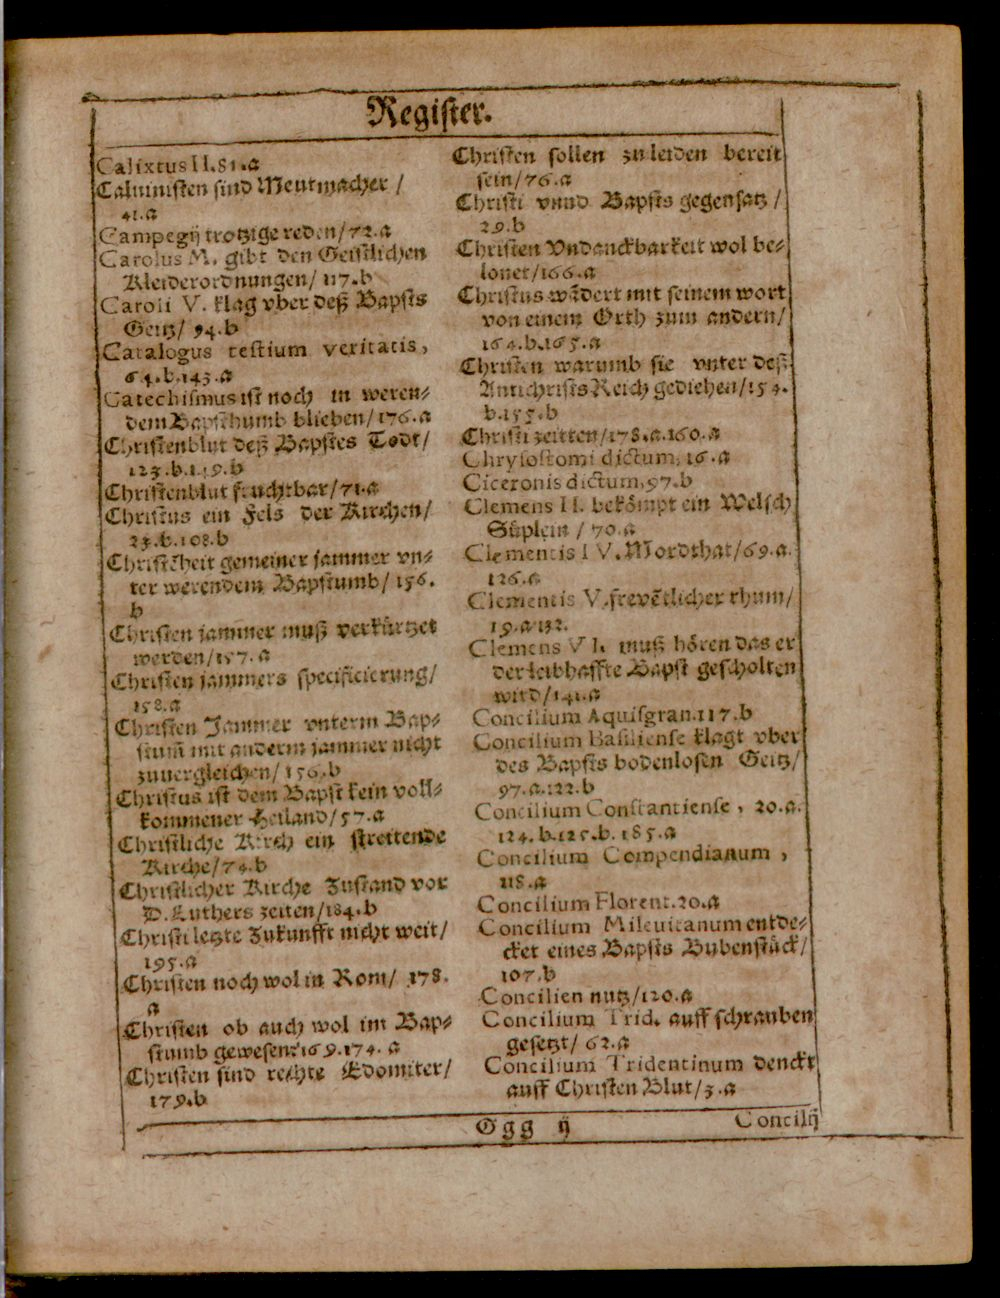 Register.
Calixtus II. 81.a
Caluinisten sind Meutmacher /
41.a
Campegij trotzige reden/72.a
Carolus M. gibt den Geistlichen
Kleiderordnungen/ 117.b
Caroli V. klag vber deß Bapsts
Geitz/ 94.b
Catalogus testium veritatis,
64.b.143.a
Catechismus ist noch in weren-
dem Bapsthumb blieben/176.a
Christenblut deß Bapstes Todt/
123.b.119.b
Christenblut fruchtbar/71.a
Christus ein Fels der Kirchen/
23.b.108.b
Christēheit gemeiner jammer vn-
ter werendem Bapstumb/ 156.
b
Christen jammer muß verkürtzet
werden/157.a
Christen jammers specificierung/
158.a
Christen Jammer vnterm Bap-
stum̃ mit anderm jammer nicht
zuuergleichen/ 156.b
Christus ist dem Bapst kein voll-
kommener Heiland/57.a
Christliche Kirch ein streitende
Kirche/74.b
Christlicher Kirche Zustand vor
D. Luthers zeiten/184.b
Christi letzte Zukunfft nicht weit/
195.a
Christen noch wol in Rom/ 178.
a
Christen ob auch wol im Bap-
stumb gewesen?169.174. a
Christen sind rechte Edomiter/
179.b
Christen sollen zu leiden bereit
sein/76.a
Christi vnnd Bapsts gegensatz /
29.b
Christen Vndanckbarkeit wol be-
lonet/166.a
Christus wādert mit seinem wort
von einem Orth zum andern/
164.b.165.a
Christen warumb sie vnter deß
Antichrists Reich gediehen/154.
b.155.b
Christi zeitten/178.a.160.a
Chrysostomi dictum, 16.a
Ciceronis dictum, 97.b
Clemens II. bekömpt ein Welsch
Süplein / 70.a
Clementis IV. Mordthat/69.a.
126.a
Clementis V. frevētlicher rhum/
19.a 132.
Clemens VI. muß hören das er
der leibhaffte Bapst gescholten
wird/141.a
Concilium Aquisgran. 117.b
Concilium Basiliense klagt vber
des Bapsts bodenlosen Geitz/
97.a.122.b
Concilium Constantiense, 20.a.
124.b.125.b. 185.a
Concilium Compendianum ,
118.a
Concilium Florent. 20.a
Concilium Mileuitanum entde-
cket eines Bapsts Bubenstück/
107.b
Concilien nutz/120.a
Concilium Trid. auff schrauben
gesetzt/ 62.a
Concilium Tridentinum denckt
auff Christen Blut/3.a
Ggg ij
Concilij